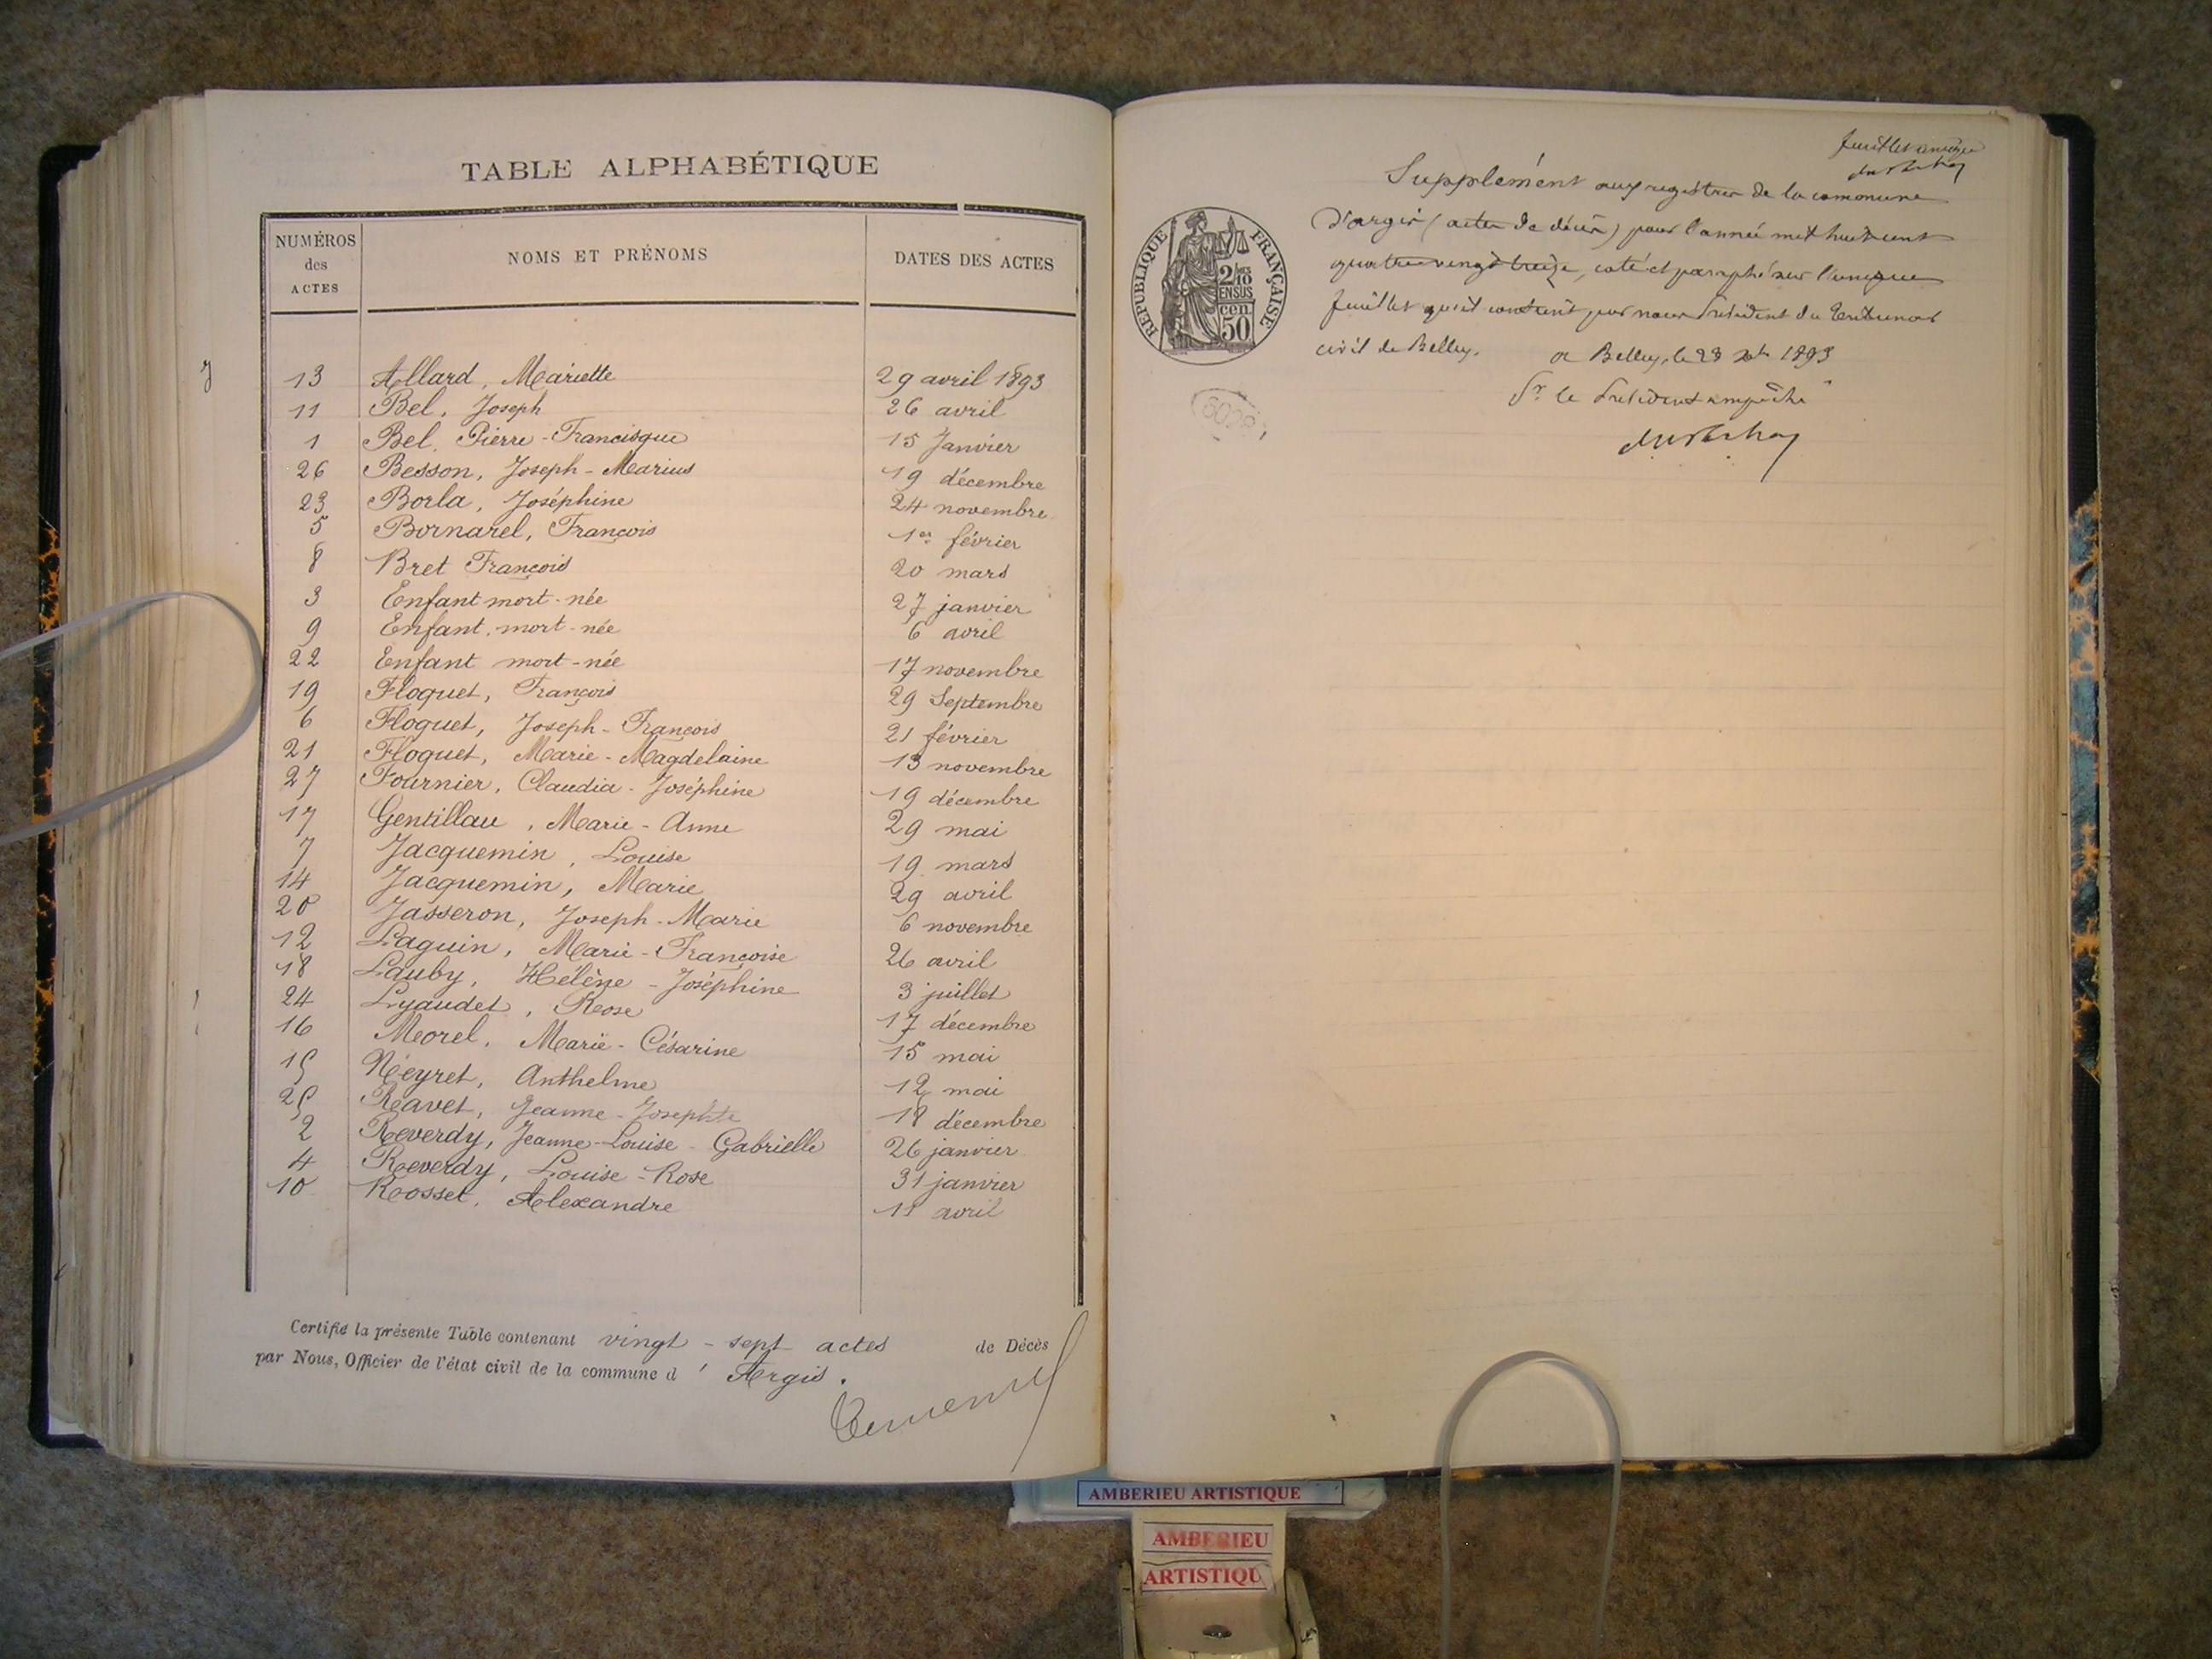 TABLE ALPHABÉTIQUE
NUMÉROS des ACTES NOMS ET PRÉNOMS DATES DES ACTES
13 Allard, Mariette 29 avril 1893
11 Bel, Joseph 26 avril
1 Bel, Pierre-Francisque 15 Janvier
26 Besson, Joseph-Marius 19 décembre
23 Borla, Joséphine 24 novembre
5 Bornarel, François 1er février
8 Bret François 20 mars
3 Enfant mort-née 27 janvier
9 Enfant mort-née 6 avril
22 Enfant mort-née 17 novembre
19 Floquet, François 29 Septembre
6 Floquet, Joseph-François 21 février
21 Floquet, Marie-Magdelaine 13 novembre
27 Fournier, Claudia-Joséphine 19 décembre
17 Gentillau, Marie-Anne 29 mai
7 Jacquemin, Louise 19 mars
14 Jacquemin, Marie 29 avril
20 Jasseron, Joseph-Marie 6 novembre
12 Laguin, Marie-Françoise 26 avril
18 Lauby, Hélène-Joséphine 3 juillet
24 Lyaudet, Rose 17 décembre
16 Morel, Marie-Césarine 15 mai
15 Néyret, Anthelme 12 mai
25 Ravet, Jeanne-Josephte 18 décembre
2 Reverdy, Jeanne-Louise-Gabrielle 26 janvier
4 Reverdy, Louise-Rose 31 janvier
10 Rosset, Alexandre 11 avril
Certifié la présente Table contenant vingt-sept actes de Décès
par Nous, Officier de l'état civil de la commune d'Argis.
feuillet unique
Supplément aux registres de la commune
d'argis (actes de décès) pour l'année mil huit cent
quatre vingt treize, coté et paraphé sur l'unique
feuillet qu'il contient par nous Président du Tribunal
civil de Belley.
a Belley, le 23 Xbre 1893
Pr le Président empêché
RÉPUBLIQUE FRANÇAISE
2/10 EN SUS
50 cen.
AMBERIEU ARTISTIQUE
AMBERIEU
ARTISTIQU